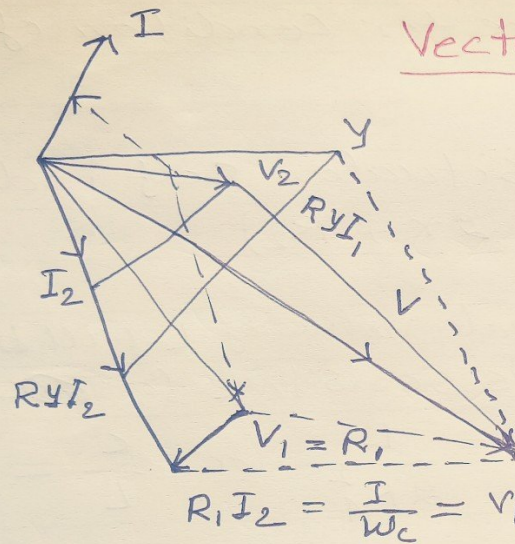 I
Vect
y
V2
RyI1
I2
V
RyI2
V1 = R1
R1 I2 = I/Wc = V